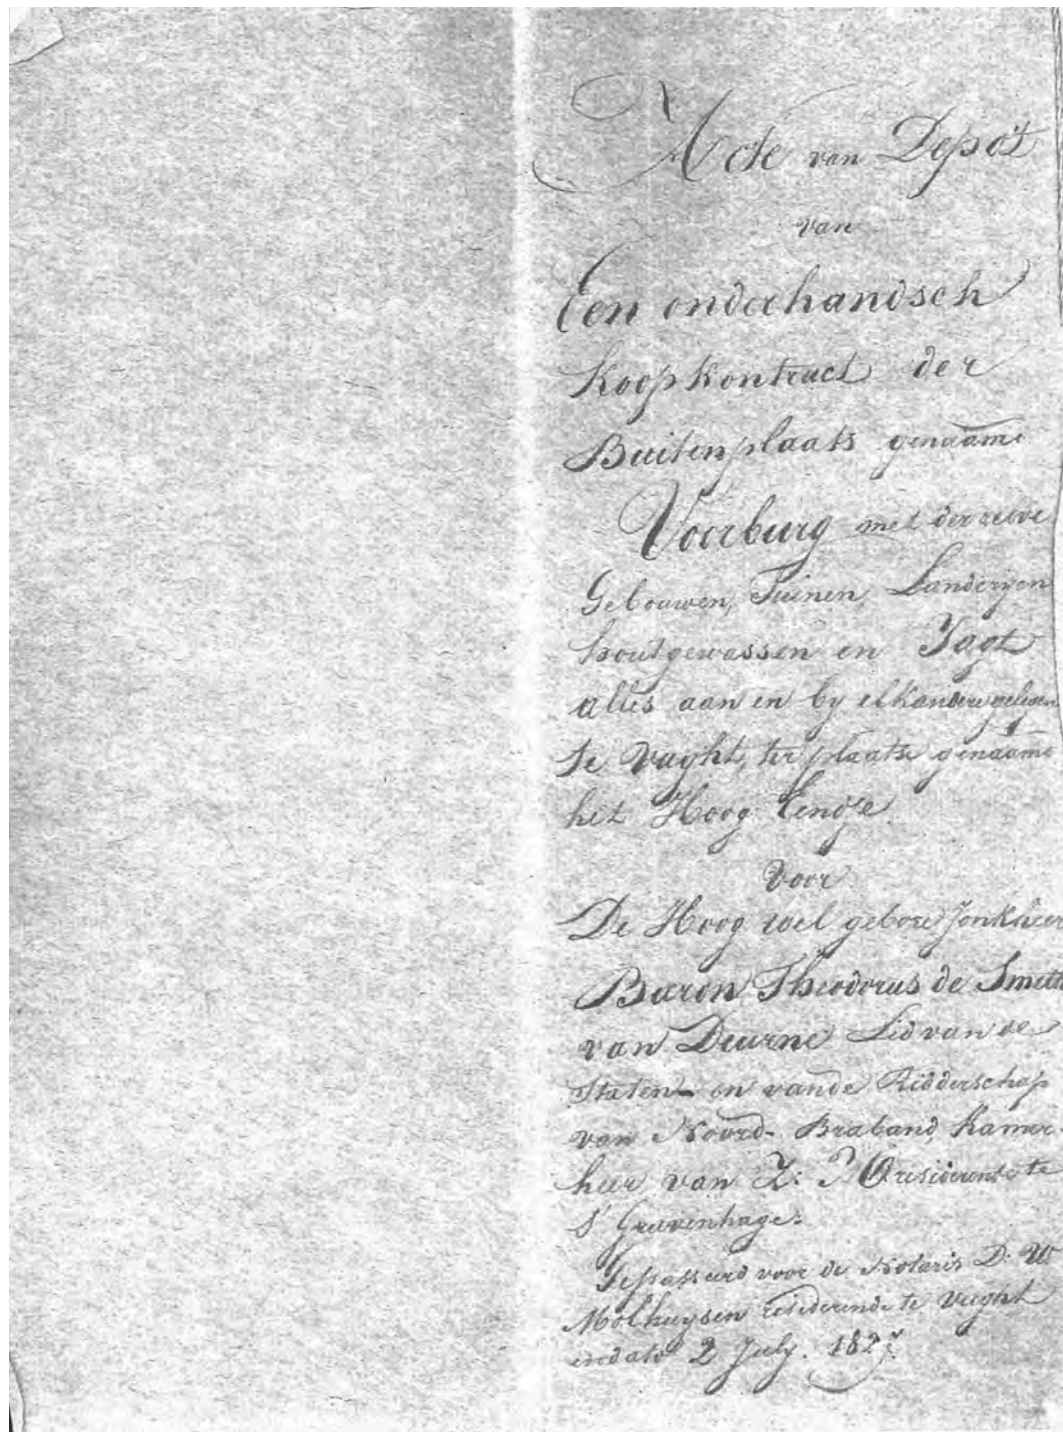 Acte van Depot
van
Een onderhandsch
Koopkontract der
Buitenplaats genaamd
Voorburg met derzelve
Gebouwen, Tuinen, Landerijen
houtgewassen en Jagt
alles aan en by elkandere gelegen
te Vught, ter plaatse genaamd
het Hoog Eendje.
voor
De Hoog wel gebore Jonkheer
Baron Theodorus de Smeth
van Deurne Lid van de
Staten- en vande Ridderschap
van Noord- Braband, Kamer-
heer van Z: M residerende te
s' Gravenhage:
Gepasseerd voor de Notaris D. W
Molhuysen residerende te Vught
in dato 2 July.